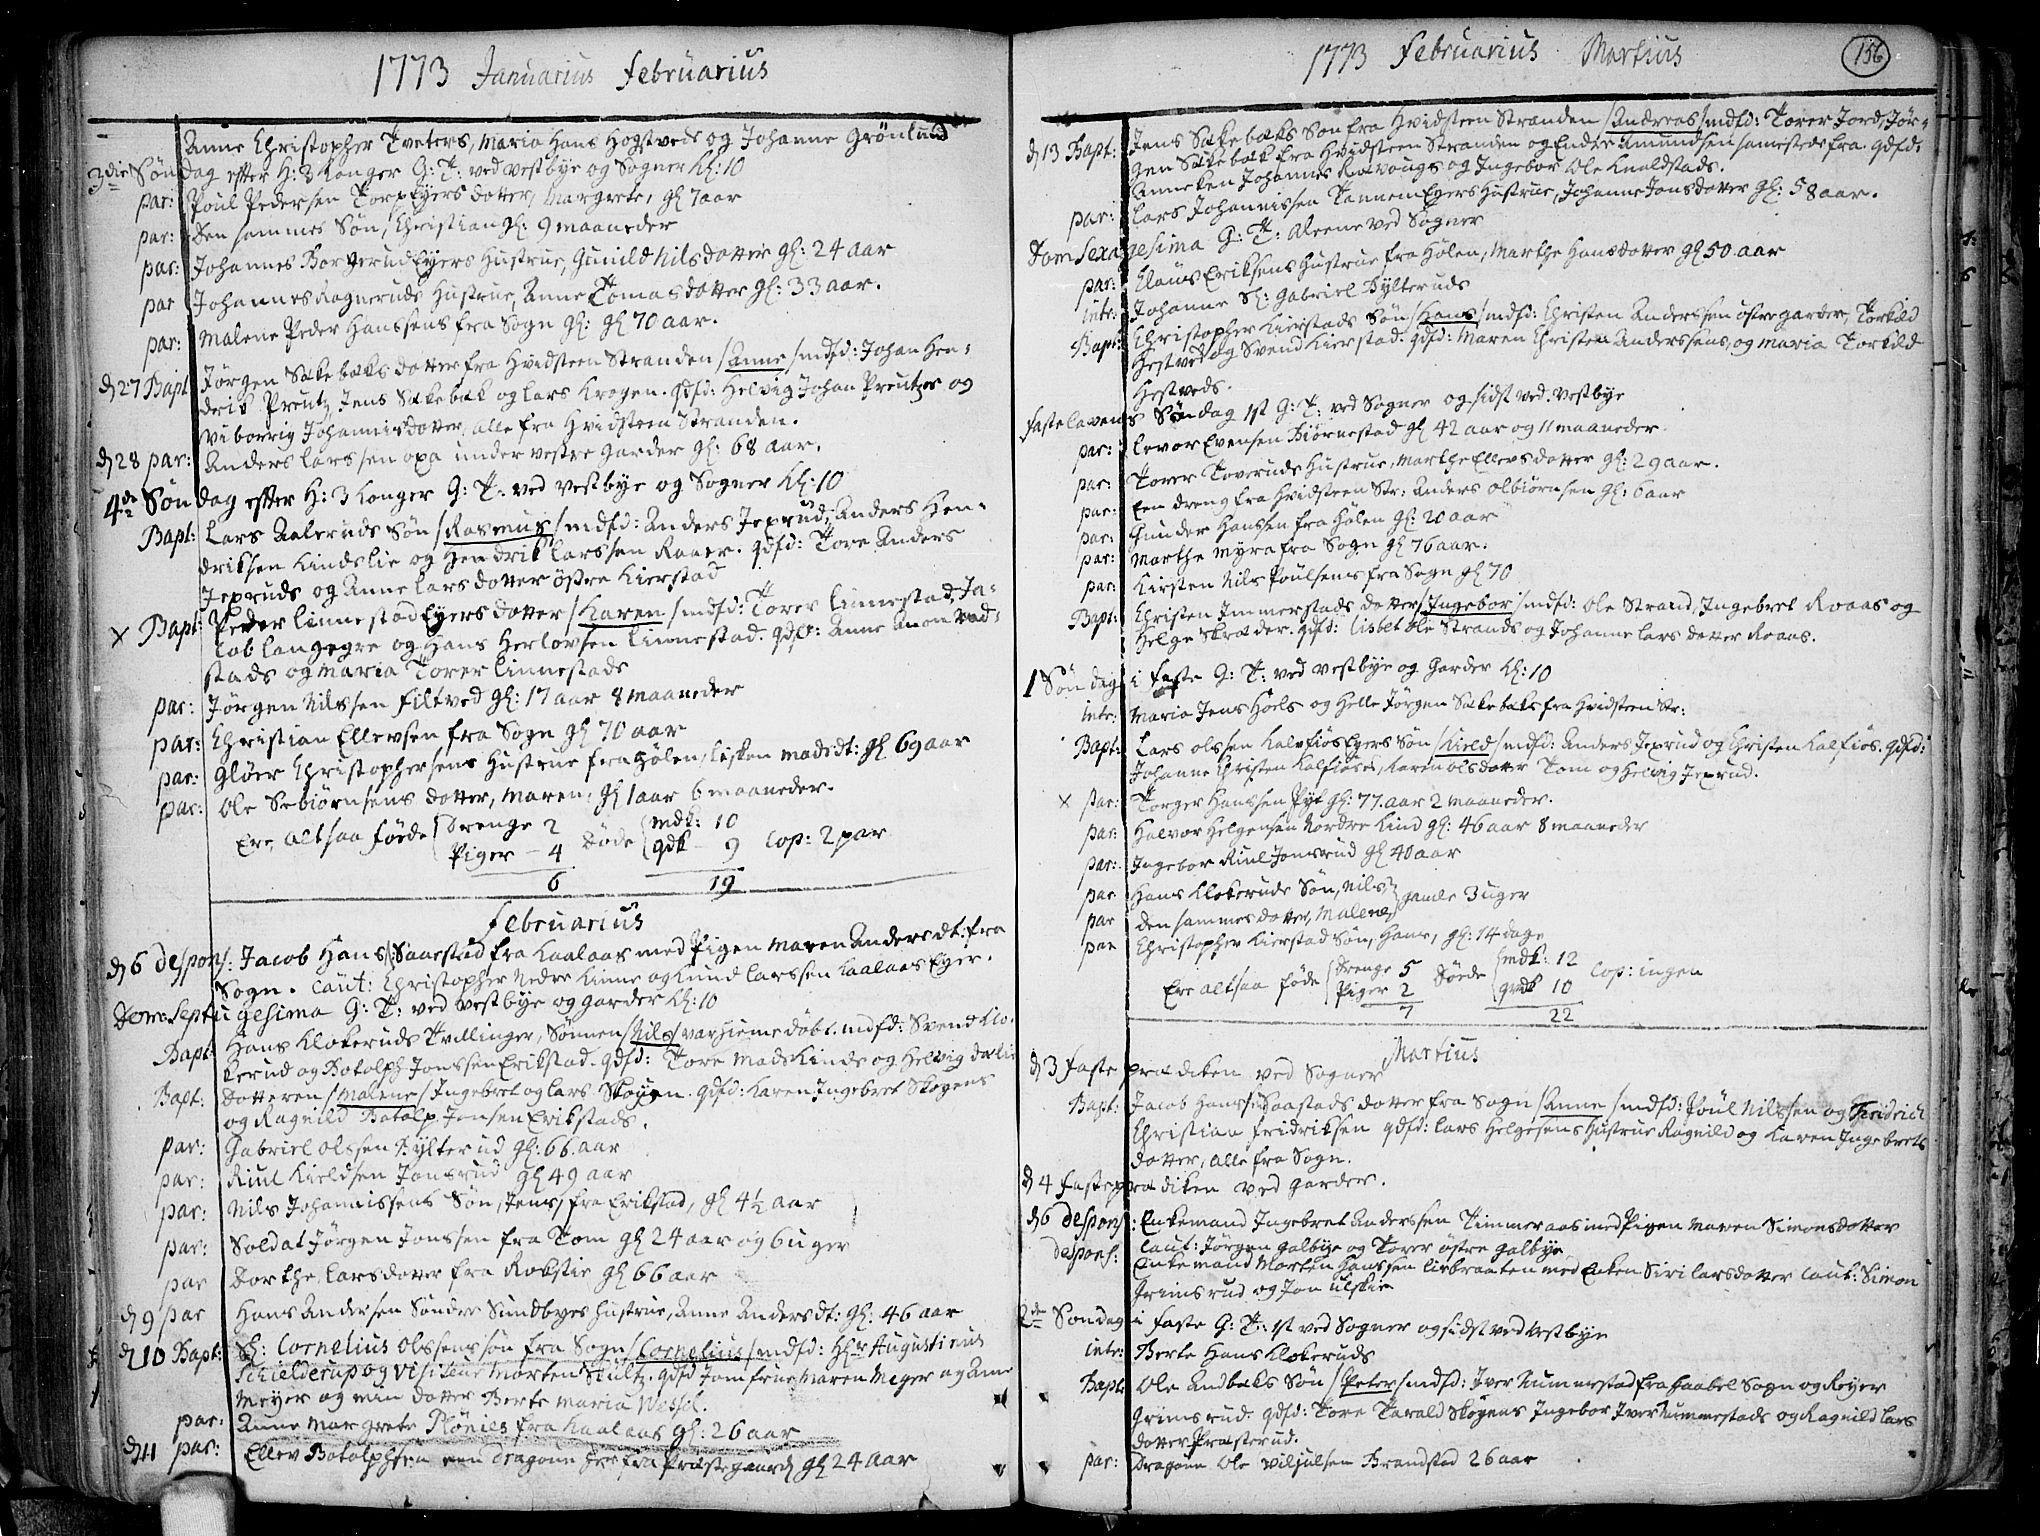 1773 Januarius Februarius
Anne Christopher Tveters, Maria Hans Hogstvedt og Johanne Grönlund
3die Søndag efter H: 3 Konger G: T: ved Vestbye og Sogner Kl: 10
par: Poul Pedersen Torp Eyers dotter, Margrete, gl 7 aar
par: den sammes Søn, Christian gl: 9 maaneder
par: Johannes Borgerud Eyers Hustrue, Gunild Nils dotter gl: 24 aar
par Johannes Ragneruds Hustrue, Anne Tomas dotter gl: 33 aar.
par: Malene Peder Hanssens fra Sogn gl: gl 70 aar.
d 27 Bapt Jørgen Sækebæks dotter fra Hvidsteen Stranden /Anne/ mdfd: Johan Hen-
drik Preutz Jens Sækebæk og Lars Krogen. qdfd: Helvig Johan Preutzes og
Viborrig Johannisdotter, alle fra Hvidsteen Stranden.
d 28 par: Anders Larssen oxa under vestre Garder gl: 68 aar.
4de Søndag efter H: 3 Konger G: T: ved Vestbye og Sogner Kl: 10
Bapt: Lars Aaleruds Søn /Rasmus/ mdfd: Anders Jeprud, Anders Hen-
driksen Kindslie og Hendrik Larssen Raaer. qdfd: Tore Anders
Jepruds og Anne Lars dotter östre Kierstad
x Bapt: Peder Linnestad Eyers dotter /Karen/ mdfd: Torer Linnestad, Ja-
cob Langegre og Hans Herlovsen Linnestad. qdfd: Anne
stads og Maria Torer Linnestads
par: Jörgen Nilssen Filtved gl: 17 aar 8 maaneder
par: Christian Ellevsen fra Sogn gl 70 aar
par: Glöer Christophersens Hustrue fra Hølen, Lisken Madsdt: gl 69 aar
par: Ole Sebiørnsens dotter, Maren, gl 1 aar 6 maaneder.
Ere altsaa føde Drenge 2 Døde mdk: 10 Cop: 2 par
Piger - 4 qdk - 9
6 19
Februarius
d 6 despons: Jacob Hans/: Saarstad fra Kaalaas med Pigen Maren Andersdt: fra
Sogn. Caut: Christopher Nedre Kinne og Knud Larssen Kaalaas Eger.
Dom: Septuagesima G: T: ved Vestbye og Garder Kl: 10
Bapt: Hans Klokeruds Tvillinger, Sönnen /Nils/ var hieme döbt. mdfd: Svend Klo-
kerud og Botolph Jonssen Erikstad. qdfd: Tore Mads Kinds og Helvig
Bapt: Dotteren /Malene/ Ingebret og Lars Skøyen. qdfd: Karen Ingebret Skøyens
og Ragnild Botolp Jonsen Erikstads.
par: Gabriel Olssen Pylterud gl: 66 aar
par: Riul Kieldsen Jonsrud gl 49 aar
par: Nils Johannissens Søn, Jens, fra Erikstad, gl 4½ aar
par: Soldat Jörgen Jonssen fra Tom gl 24 aar og 6 uger
par Dorthe Larsdotter fra Rokstie gl 66 aar
d 9 par Hans Andersen Sønder Sundbyes Hustrue, Anne Andersdt: gl: 46 aar
d 10 Bapt: Sl: Cornelius Olssens søn fra Sogn /Cornelius/ mdfd: Hr Augustinus
Schielderup og Visiteur Morten Scultz. qdfd Jomfrue Maren Meyer og Anne
Meyer og min dotter Berte Maria Wessel.
par: Anne Margrete Plönies fra Kaalaas gl: 26 aar
d 11 par: Ellev Botolphsen een dragoun her fra Præstegaard gl 24 aar
1773 Februarius Martius 156
d 13 Bapt: Jens Sækebæks Søn fra Hvidsteen Stranden /Andreas/ mdfd: Torer Jord, Jör-
gen Sækebæk fra Hvidsteen Stranden og Ender Amundsen sammesteds fra. qdfd:
Anneken Johannes Ramougs og Ingebor Ole Knaldstads.
par: Lars Johannissen Tannem Egers Hustrue, Johanne Jonsdotter gl: 58 aar.
Dom Sexagesima G: T: Aleene ved Sogner
par: Claus Eriksens Hustrue fra Hølen, Marthe Hansdotter gl 50 aar
intr: Johanne Sl: Gabriel Pylteruds
Bapt: Christopher Kierstads Søn /Hans/ mdfd: Christen Anderssen östre garder, Torkild
Hestved og Svend Kierstad: qdfd: Maren Christen Anderssens, og Maria Torkild
Hestveds.
Fastelavens Søndag 1st G: T: ved Sogner og sidst ved Vestbye
par: Levor Evensen Biørnestad gl 42 aar og 11 maaneder.
par: Torer Toveruds Hustrue, Marthe Ellevsdotter gl: 29 aar.
par: Een dreng fra Hvidsteen Str: Anders Olbiørnsen gl: 6 aar
par: Gunder Hanssen fra Hølen gl: 20 aar
par: Marthe Myra fra Sogn gl 76 aar.
par: Kirsten Nils Poulsens fra Sogn gl 70
Bapt: Christen Immerstads dotter /Ingebor/ mdfd: Ole Strand, Ingebret Roaas og
Helge Skræder. qdfd: Lisbet Ole Strands og Johanne Lars dotter Roaas.
1 Søndag i Faste G: T: ved Vestbye og Garder Kl: 10
intr: Maria Jens Hoels og Helle Jörgen Sækebæks fra Hvidsteen Str:
Bapt: Lars Olssen Kalvsiøs Egers Søn /Kield/ mdfd: Anders Jeprud og Christen Kalfiøs. qdfd:
Johanne Christen Kalfiøses, Karen Olsdotter Tom og Helvig Jeprud.
x par: Torger Hanssen Pyt gl: 77 aar 2 maaneder.
par: Halvor Helgensen Nordre Kind gl: 46 aar 8 maaneder
par: Ingebor Riul Jonsrud gl 40 aar
par Hans Klokeruds Søn, Nils gamle 3 uger
par den sammes dotter, Malene
par Christopher Kierstad Søn, Hans, gl: 14 dage
Ere altsaa føde Drenge 5 Døde mdk: 12 Cop: ingen
Piger 2 qvdk 10
7 22
Martius
d 3 Fasteprædiken ved Sogner
Bapt: Jacob Hans/: Saastads dotter fra Sogn /Anne/ mdfd: Poul Nilssen og Fridrich
Christian Fridriksen qdfd: Lars Helgesens Hustrue Ragnild og Karen Ingebrets
dotter, alle fra Sogn.
d 4 Fasteprædiken ved Garder.
d 6 despons: Enkemand Ingebret Anderssen Timmeraas med Pigen Maren Simonsdotter
Caut: Jörgen Galbye og Torer östre Galbye
despons: Enkemand Morten Hanssen Liebraaten med Enken Siri Larsdotter Caut: Simon
Grimsrud og Jon Ulskie
2de Søndag i Faste G: T: 1st ved Sogner og sidst ved Vestbye
intr: Berte Hans Klokeruds
Bapt: Ole Andbæks Søn /Peter/ mdfd: Iver Nummestad fra Haabel Sogn og Reyer
Grimsrud. qdfd: Tore Tarald Skøyens Ingebor Iver Nummestads og Ragnild Lars
dotter Præsterud.
par: Dragoun Ole Viljulsen Brandstad 26 aar